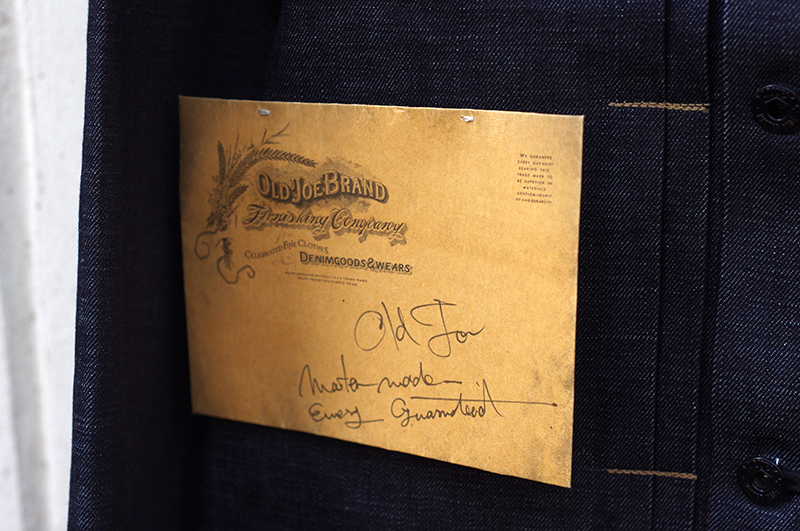 OLD JOE BRAND
Firnishing Company
CELEBRATED FINE CLOTHES
DENIMGOODS & WEARS
WE GUARANTEE
EVERY GARMENT
BEARING THIS
TRADE MARK TO
BE SUPERIOR IN
MATERIALS
Old Joe
Master made
Every Guaranteed